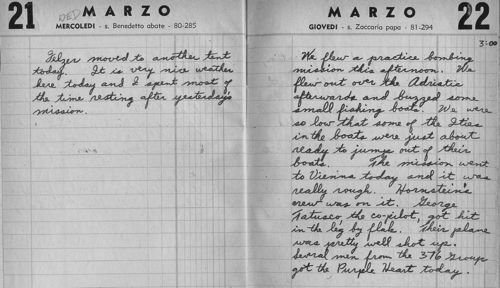 21 WED MARZO
MERCOLEDI - s. Benedetto abate - 80-285
Felzer moved to another tent
today. It is very nice weather
here today and I spent most of
the time resting after yesterday's
mission.
MARZO 22
GIOVEDI - s. Zaccaria papa - 81-294
3:00
We flew a practice bombing
mission this afternoon. We
flew out over the Adriatic
afterwards and buzzed some
small fishing boats. We were
so low that some of the Ities
in the boats were just about
ready to jump out of their
boats. The mission went
to Vienna today and it was
really rough. Hornstein's
crew was on it. George
Tatusco, the co-pilot, got hit
in the leg by flak. Their plane
was pretty well shot up.
Several men from the 376 Group
got the Purple Heart today.